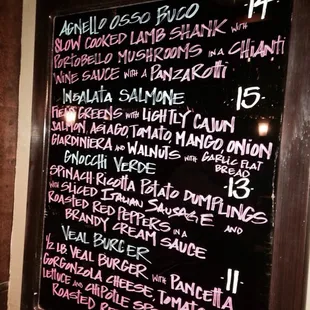 AGNELLO OSSO BUCO 14
SLOW COOKED LAMB SHANK WITH
PORTOBELLO MUSHROOMS IN A CHIANTI
WINE SAUCE WITH A PANZAROTTI
INSALATA SALMONE 15
FIELD GREENS WITH LIGHTLY CAJUN
SALMON, ASIAGO, TOMATO, MANGO, ONION
GIARDINIERA AND WALNUTS WITH GARLIC FLAT
BREAD
GNOCCHI VERDE 13
SPINACH RICOTTA POTATO DUMPLINGS
WITH SLICED ITALIAN SAUSAGE AND
ROASTED RED PEPPERS IN A
BRANDY CREAM SAUCE
VEAL BURGER 11
1/2 LB VEAL BURGER WITH PANCETTA
GORGONZOLA CHEESE, TOMATO
LETTUCE AND CHIPOTLE
ROASTED